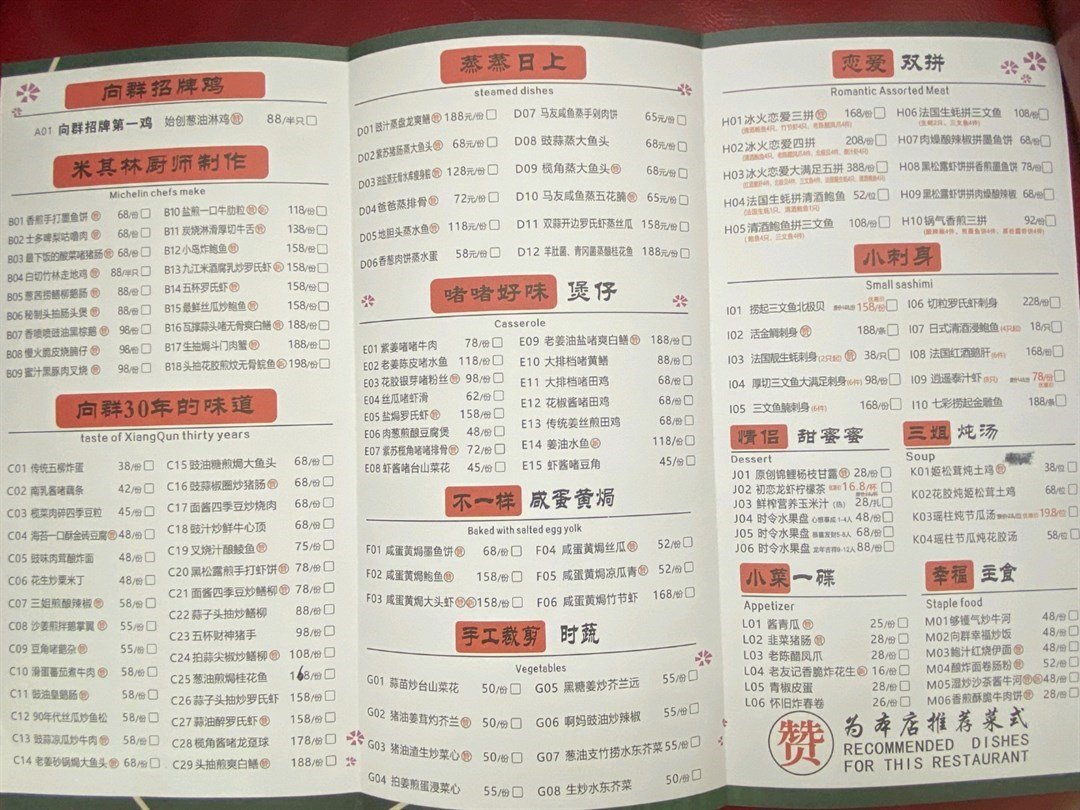 向群招牌鸡
A01 向群招牌第一鸡 始创葱油淋鸡 赞 88/半只
米其林厨师制作
Michelin chefs make
B01 香煎手打墨鱼饼 赞 68/份
B02 士多啤梨咕噜肉 赞 68/份
B03 最下饭的酸菜啫猪肠 赞 68/份
B04 白切竹林走地鸡 赞 88/半只
B05 葱茜捞鳝柳鹅肠 赞 88/份
B06 秘制头抽肠头煲 赞 88/份
B07 香喷喷豉油黑棕鹅 赞 98/份
B08 慢火脆皮烧腩仔 赞 98/份
B09 蜜汁黑豚肉叉烧 赞 98/份
B10 盐煎一口牛肋粒 118/份
B11 炭烧淋滑厚切牛舌 赞 138/份
B12 小皂炸鲍鱼 赞 158/份
B13 九江米酒腐乳炒罗氏虾 158/份
B14 五杯罗氏虾 赞 158/份
B15 最鲜丝瓜炒鲍鱼 赞 158/份
B16 瓦撑蒜头啫无骨爽白鳝 赞 188/份
B17 生抽焗斗门肉蟹 赞 188/份
B18 头抽花胶煎炆无骨鲩鱼 198/份
向群30年的味道
taste of XiangQun thirty years
C01 传统五柳炸蛋 38/份
C02 南乳酱啫藕条 42/份
C03 榄菜肉碎四季豆粒 45/份
C04 海苔一口酥金砖豆腐 赞 48/份
C05 豉味肉茸酿炸面 48/份
C06 花生炒粟米丁 48/份
C07 三姐煎酿辣椒 赞 58/份
C08 沙姜煎拌鹅掌翼 赞 55/份
C09 豆角啫鹅杂 赞 55/份
C10 滑蛋蕃茄煮牛肉 赞 58/份
C11 豉油皇鹅肠 赞 58/份
C12 90年代丝瓜炒鱼松 58/份
C13 豉蒜凉瓜炒牛肉 赞 58/份
C14 老姜砂锅焗大鱼头 赞 68/份
C15 豉油糖煎焗大鱼头 68/份
C16 豉蒜椒圈炒猪肠 赞 68/份
C17 面酱四季豆炒烧肉 68/份
C18 豉汁炒鲜牛心顶 68/份
C19 叉烧汁酿鲮鱼 赞 75/份
C20 黑松露煎手打虾饼 赞 78/份
C21 面酱四季豆炒鳝柳 赞 78/份
C22 蒜子头抽炒鳝柳 88/份
C23 五杯财神猪手 98/份
C24 拍蒜尖椒炒鳝柳 赞 108/份
C25 葱油煎焗桂花鱼 168/份
C26 蒜子头抽炒罗氏虾 158/份
C27 蒜油醉罗氏虾 赞 158/份
C28 榄角酱啫龙趸球 178/份
C29 头抽煎爽白鳝 赞 188/份
蒸蒸日上
steamed dishes
D01 豉汁蒸盘龙爽鳝 赞 188元/份
D02 紫苏猪肠蒸大鱼头 赞 68元/份
D03 泡盐蒸无骨水库瘦身鲩 赞 128元/份
D04 爸爸蒸排骨 赞 72元/份
D05 地胆头蒸水鱼 赞 118元/份
D06 香葱肉饼蒸水蛋 58元/份
D07 马友咸鱼蒸手剁肉饼 65元/份
D08 豉蒜蒸大鱼头 68元/份
D09 榄角蒸大鱼头 68元/份
D10 马友咸鱼蒸五花腩 赞 65元/份
D11 双蒜开边罗氏虾蒸丝瓜 158元/份
D12 羊肚菌、青冈菌蒸酿桂花鱼 188元/份
啫啫好味 煲仔
Casserole
E01 紫姜啫啫牛肉 78/份
E02 老姜陈皮啫水鱼 118/份
E03 花胶银芽啫粉丝 赞 98/份
E04 丝瓜啫虾滑 62/份
E05 盐焗罗氏虾 赞 158/份
E06 肉葱煎酿豆腐煲 48/份
E07 紫苏榄角啫啫排骨 赞 72/份
E08 虾酱啫台山菜花 45/份
E09 老姜油盐啫爽白鳝 赞 188/份
E10 大排档啫黄鳝 88/份
E11 大排档啫田鸡 68/份
E12 花椒酱啫田鸡 68/份
E13 传统姜丝煎田鸡 68/份
E14 姜油水鱼 赞 118/份
E15 虾酱啫豆角 45/份
不一样 咸蛋黄焗
Baked with salted egg yolk
F01 咸蛋黄焗墨鱼饼 赞 68/份
F02 咸蛋黄焗鲍鱼 赞 158/份
F03 咸蛋黄焗大头虾 158/份
F04 咸蛋黄焗丝瓜 赞 52/份
F05 咸蛋黄焗凉瓜青 赞 52/份
F06 咸蛋黄焗竹节虾 168/份
手工裁剪 时蔬
Vegetables
G01 蒜苗炒台山菜花 50/份
G02 猪油姜茸灼芥兰 赞 50/份
G03 猪油渣生炒菜心 赞 50/份
G04 拍姜煎蛋浸菜心 55/份
G05 黑糖姜炒芥兰远 55/份
G06 啊妈豉油炒辣椒 55/份
G07 葱油支竹捞水东芥菜 55/份
G08 生炒水东芥菜 50/份
恋爱 双拼
Romantic Assorted Meat
H01 冰火恋爱三拼 赞 168/份
H02 冰火恋爱四拼 208/份
H03 冰火恋爱大满足五拼 388/份
H04 法国生蚝拼清酒鲍鱼 52/位
(法国生蚝1只、清酒鲍鱼1只)
H05 清酒鲍鱼拼三文鱼 108/份
(鲍鱼4只、三文鱼4件)
H06 法国生蚝拼三文鱼 108/份
(生蚝2只、三文鱼4件)
H07 肉燥酸辣椒拼墨鱼饼 68/份
H08 黑松露虾饼拼香煎墨鱼饼 78/份
H09 黑松露虾饼拼肉燥酿辣椒 68/份
H10 锅气香煎三拼 92/份
小刺身
Small sashimi
I01 捞起三文鱼北极贝 158/份
I02 活金鲷刺身 赞 188/条
I03 法国靓生蚝刺身(2只起) 赞 38/只
I04 厚切三文鱼大满足刺身(6件) 98/份
I05 三文鱼腩刺身(6件) 168/份
I06 切粒罗氏虾刺身 228/份
I07 日式清酒浸鲍鱼(4只起) 18/只
I08 法国红酒鹅肝(6件) 168/份
I09 逍遥泰汁虾(8只) 78/份
I10 七彩捞起金雕鱼 188/条
情侣 甜蜜蜜
Dessert
J01 原创锦鲤杨枝甘露 赞 28/份
J02 初恋龙虾柠檬茶 16.8/杯
J03 鲜榨营养玉米汁(热) 28/扎
J04 时令水果盘 心想事成1-4人 48/份
J05 时令水果盘 恭喜发财5-8人 68/份
J06 时令水果盘 龙年吉祥9-12人 88/份
三姐 炖汤
Soup
K01 姬松茸炖土鸡 赞 38/位
K02 花胶炖姬松茸土鸡 68/位
K03 瑶柱炖节瓜汤 19.8/位
K04 瑶柱节瓜炖花胶汤 58/位
小菜一碟
Appetizer
L01 酱青瓜 赞 25/份
L02 韭菜猪肠 赞 28/份
L03 老陈醋凤爪 28/份
L04 老友记香脆炸花生 16/份
L05 青椒皮蛋 28/份
L06 怀旧炸春卷 26/份
幸福 主食
Staple food
M01 够镬气炒牛河 48/份
M02 向群幸福炒饭 48/份
M03 鲍汁红烧伊面 赞 48/份
M04 酿炸面卷肠粉 赞 52/份
M05 湿炒沙茶酱牛河 48/份
M06 香煎酥脆牛肉饼 赞 28/份
赞 为本店推荐菜式
RECOMMENDED DISHES
FOR THIS RESTAURANT